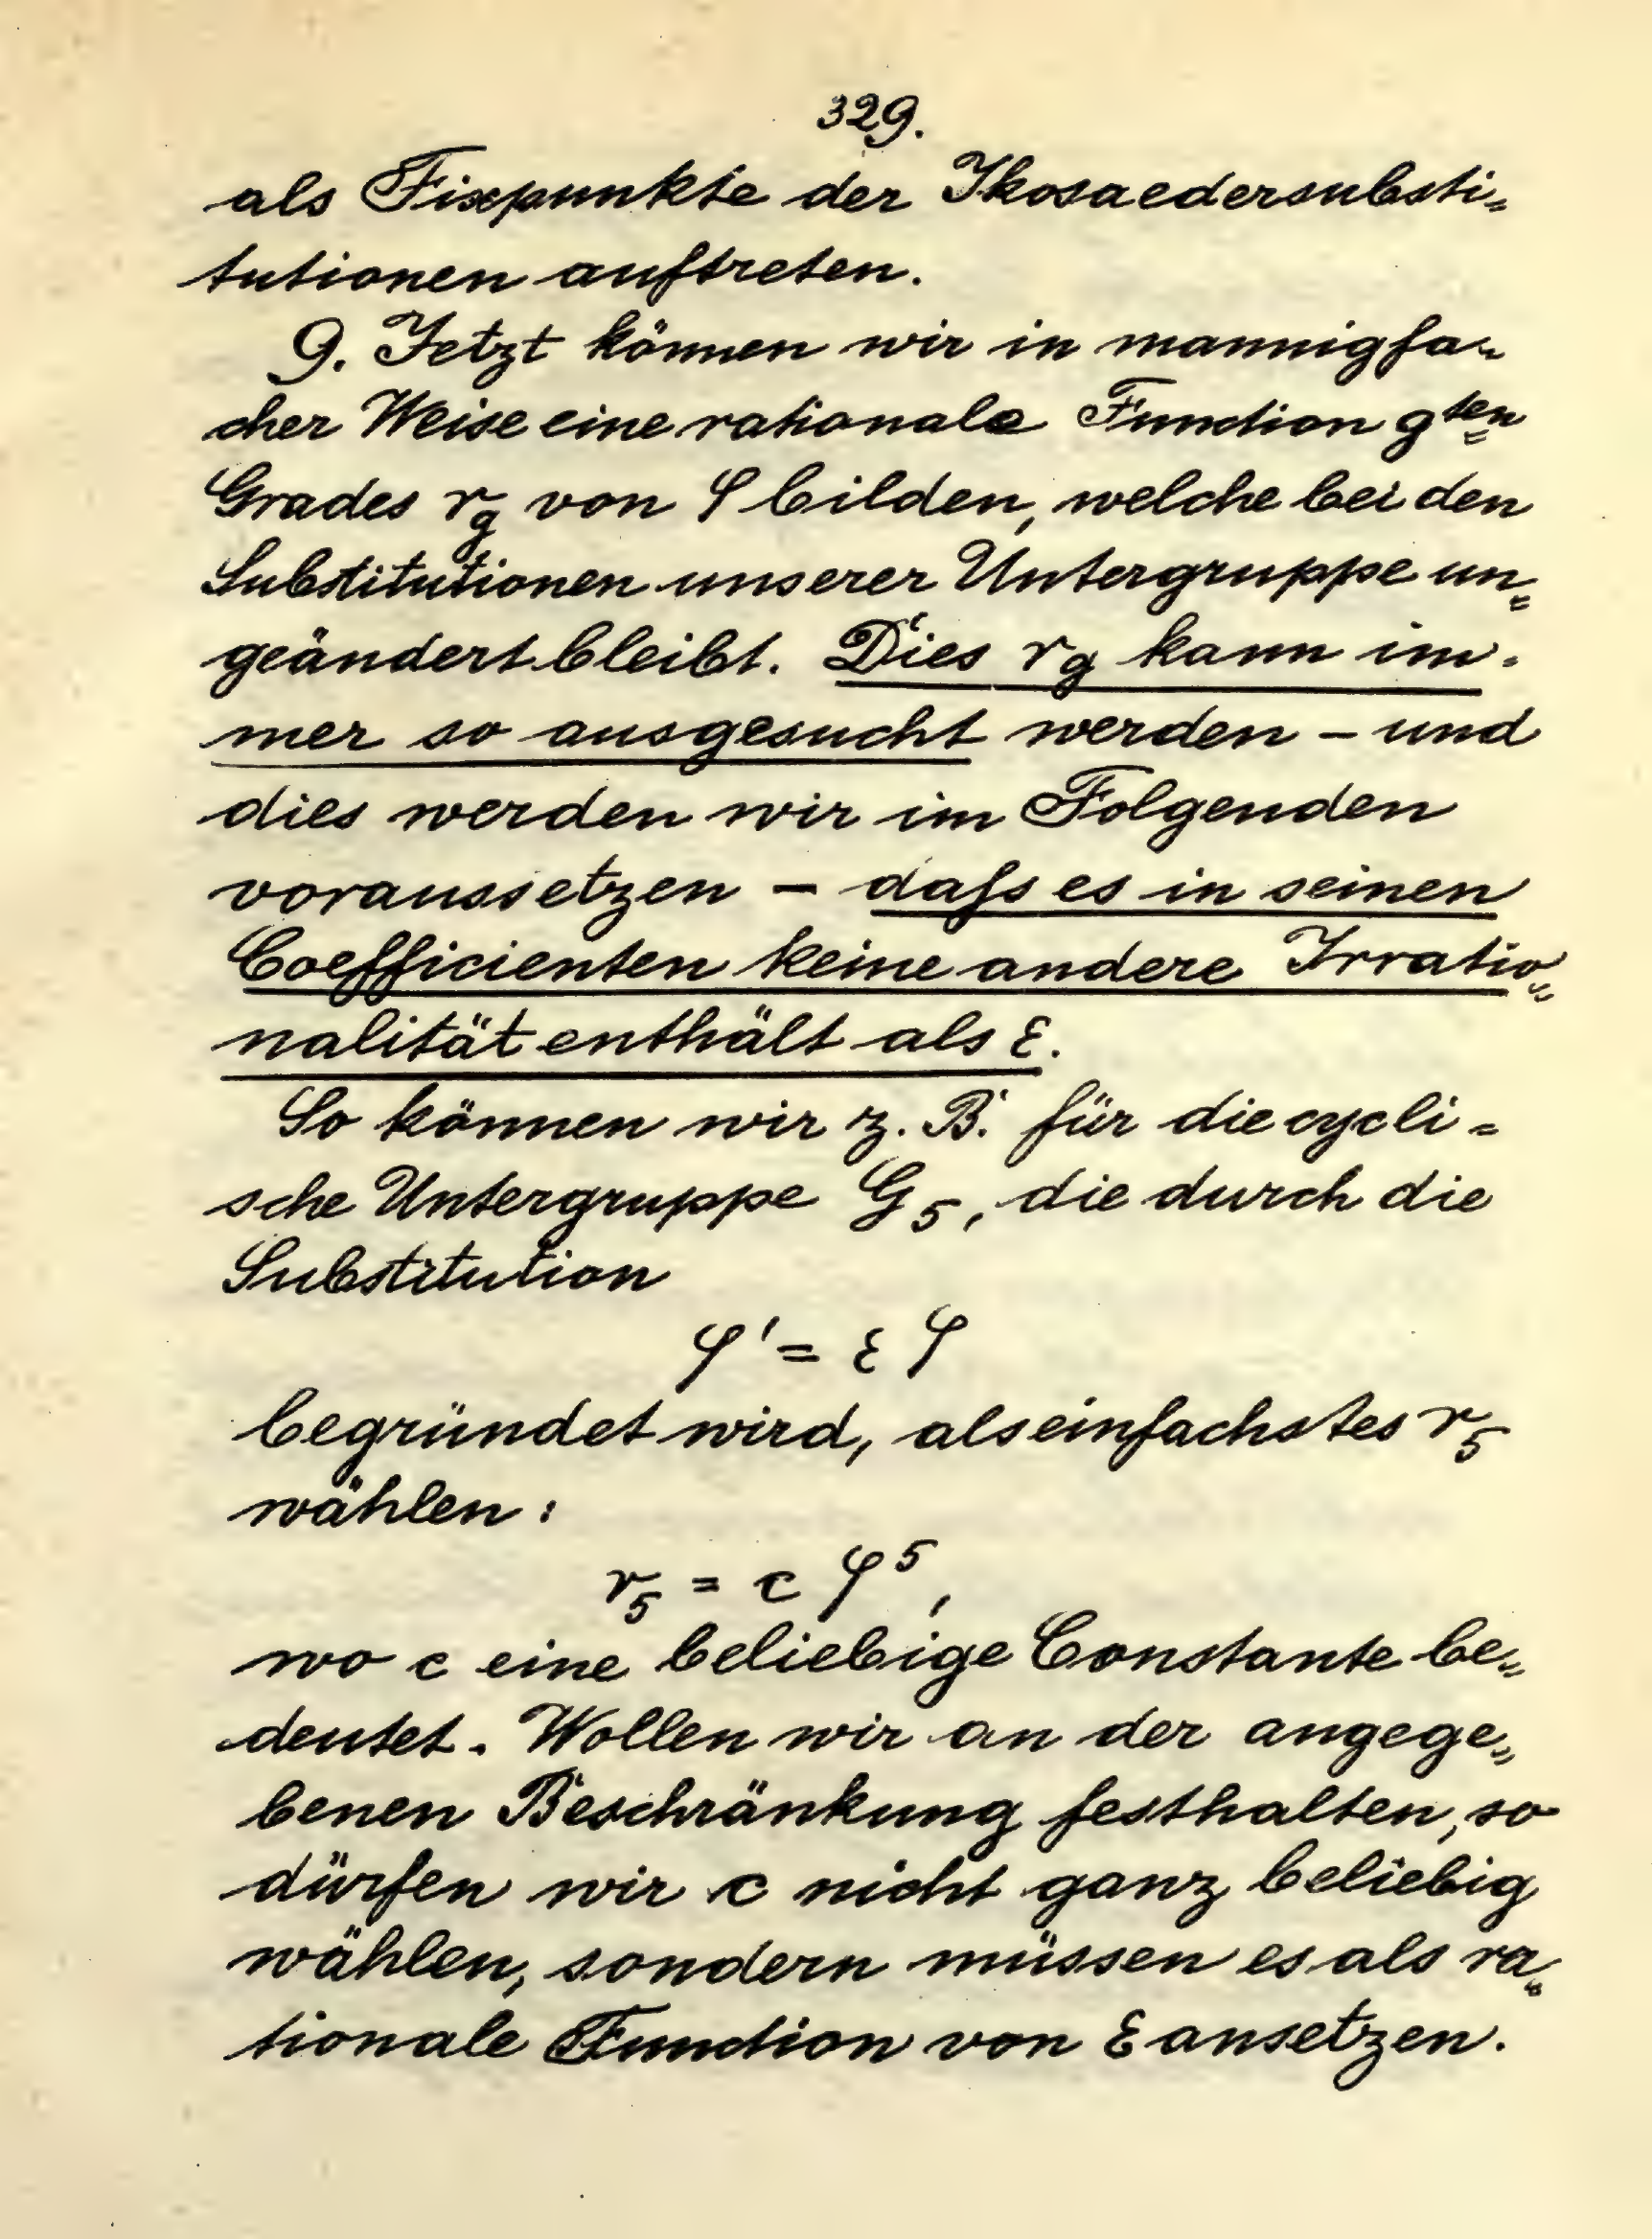 329.
als Fixpunkte der Ikosaedersubsti=
tutionen auftreten.
9. Jetzt können wir in mannigfa=
cher Weise eine rationale Function gten
Grades r_g von φ bilden, welche bei den
Substitutionen unserer Untergruppe un=
geändert bleibt. Dies r_g kann im=
mer so ausgesucht werden – und
dies werden wir im Folgenden
voraussetzen – daſs es in seinen
Coefficienten keine andere Irratio=
nalität enthält als ε.
So können wir z. B. für die cycli=
sche Untergruppe G₅, die durch die
Substitution
φ' = ε φ
begründet wird, als einfachstes r₅
wählen:
r₅ = c φ⁵,
wo c eine beliebige Constante be=
deutet. Wollen wir an der angege=
benen Beschränkung festhalten, so
dürfen wir c nicht ganz beliebig
wählen, sondern müssen es als ra=
tionale Function von ε ansetzen.